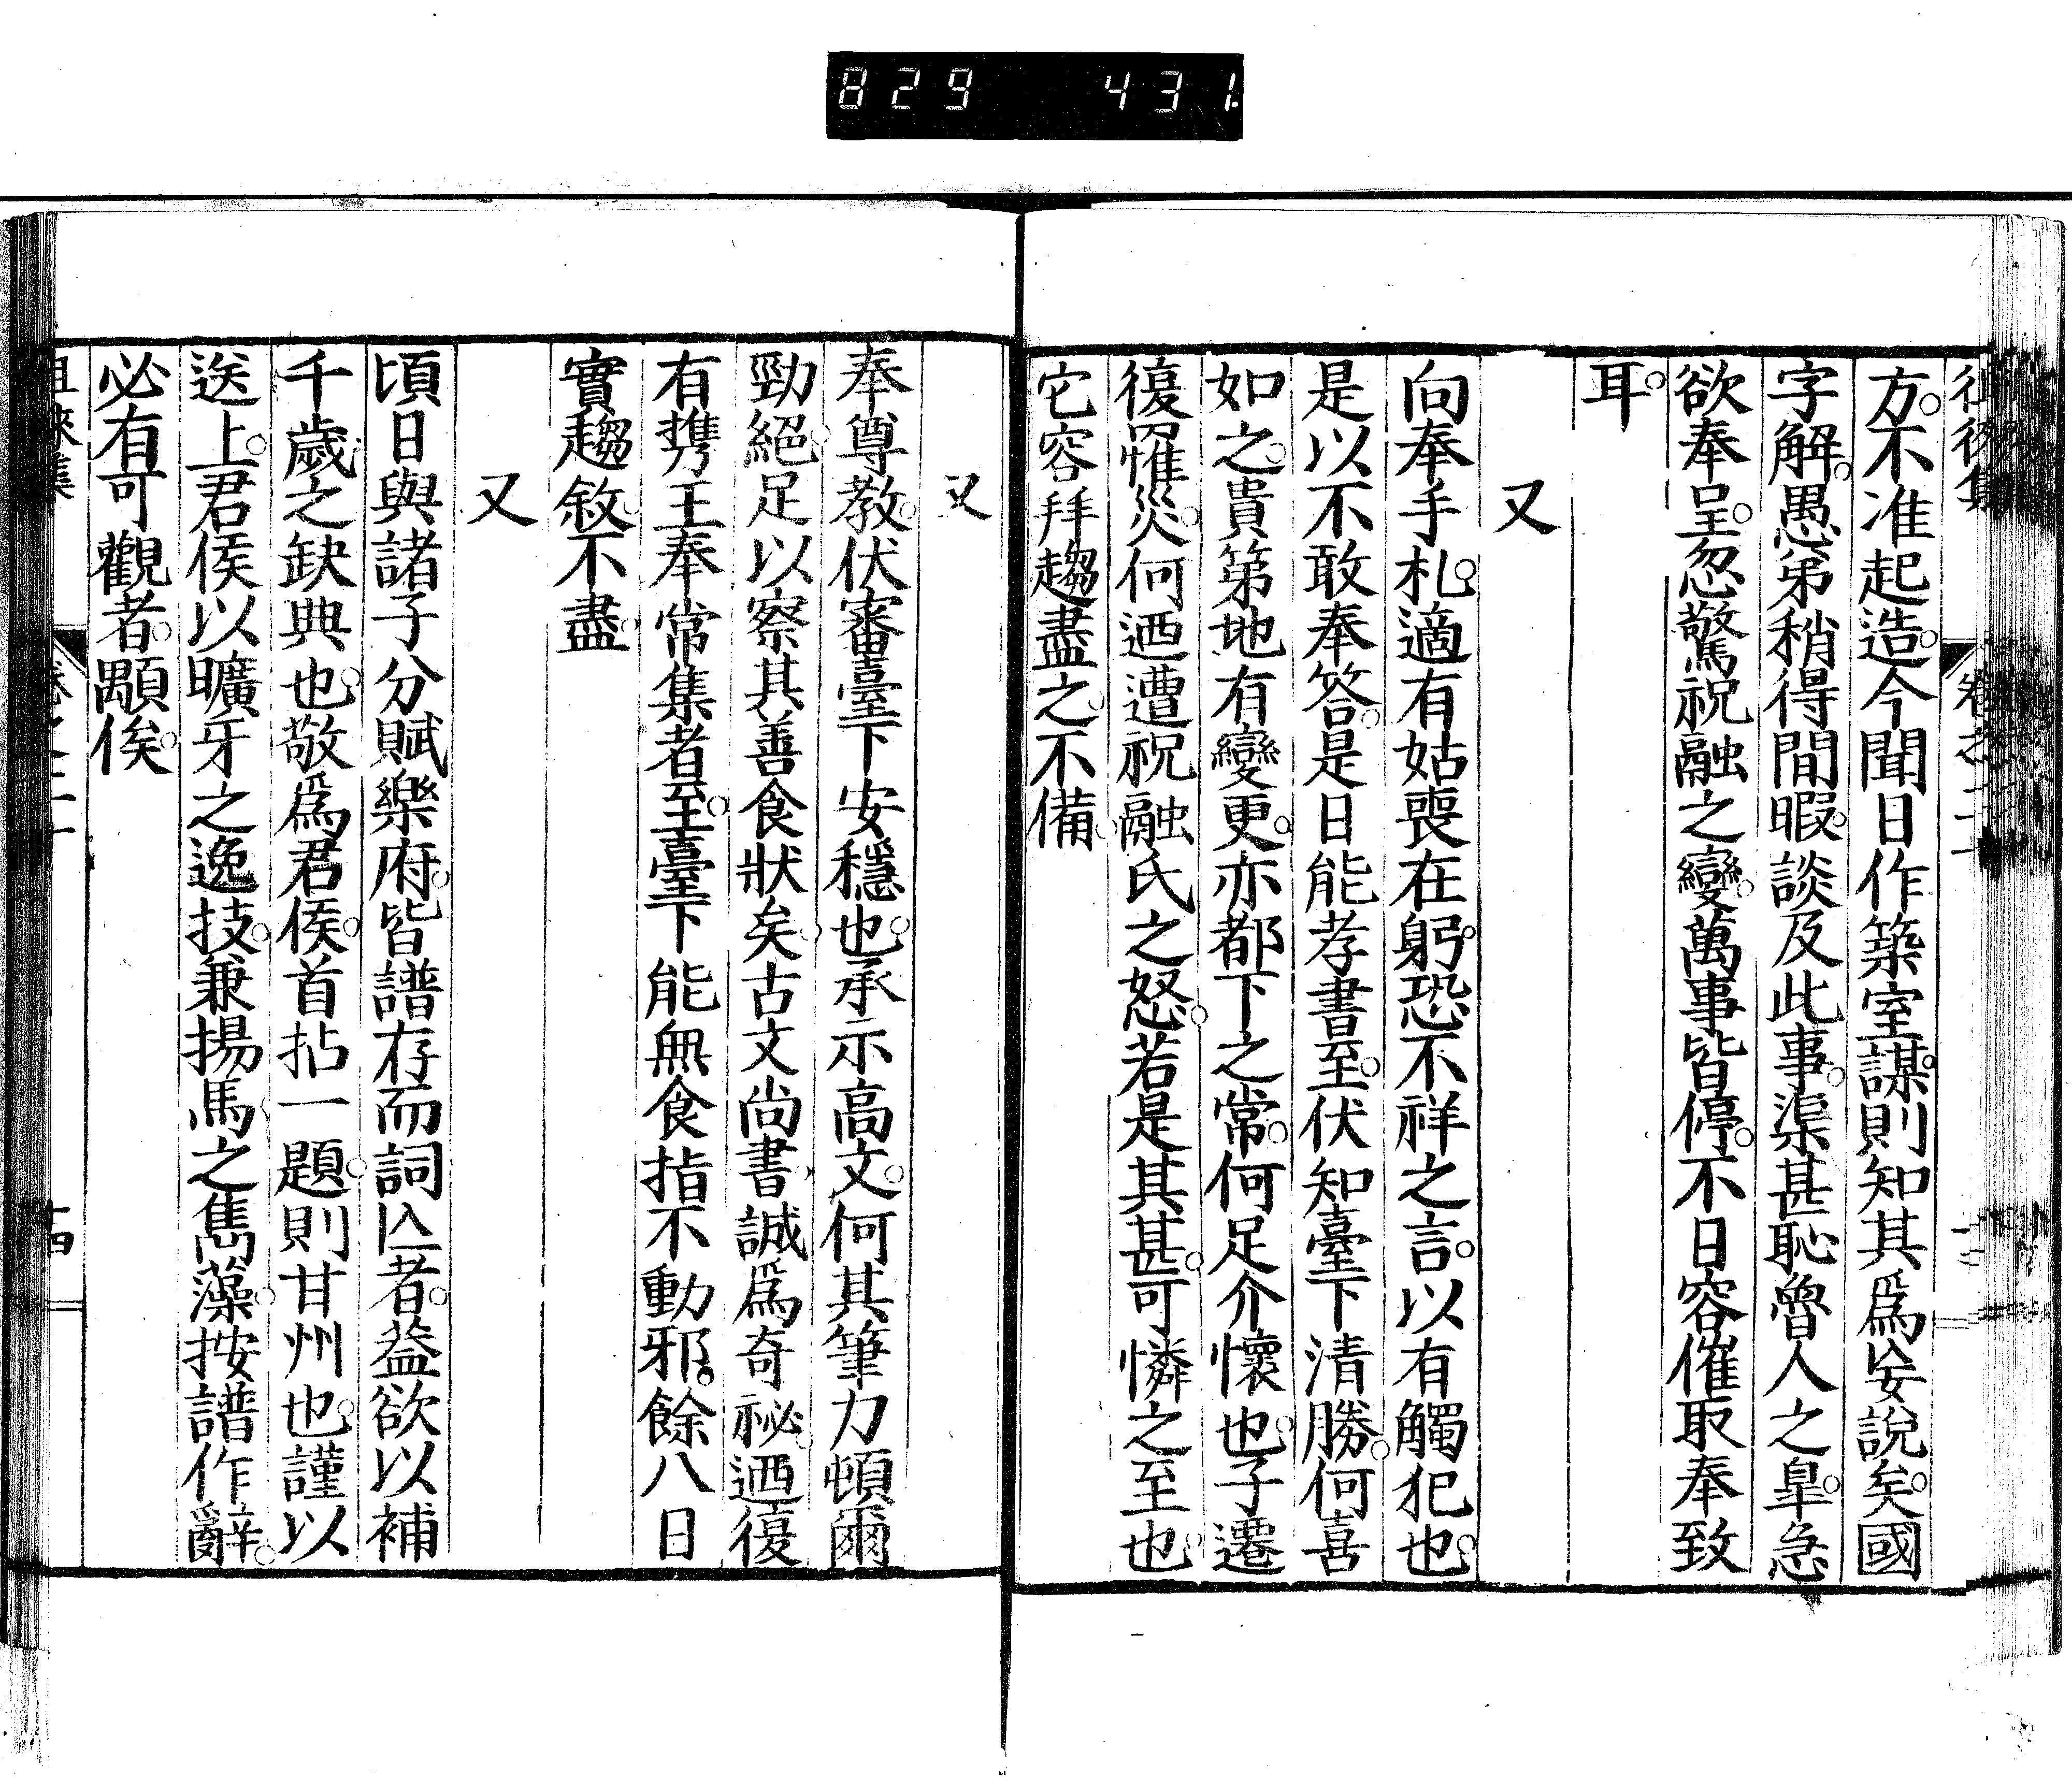 829 431
方。不准起造。今聞日作築室謀。則知其爲妄說矣。國
字解。愚弟稍得間暇。談及此事。渠甚恥魯人之皐。急
欲奉呈。忽驚祝融之變。萬事皆停。不日容催取奉致
耳。
又
向奉手札。適有姑喪在躬。恐不祥之言。以有觸犯也。
是以不敢奉答。是日能孝書至。伏知臺下清勝。何喜
如之。貴第地有變更。亦都下之常。何足介懷也。子遷
復罹災。何迺遭祝融氏之怒。若是其甚。可憐之至也。
它容拜趨盡之。不備。
又
奉尊教。伏審臺下安穩也。承示高文。何其筆力頓爾
勁絕。足以察其善食狀矣。古文尚書。誠爲奇祕。迺復
有携王奉常集者至。臺下能無食指不動邪。餘八日
實趨敘。不盡。
又
頃日與諸子分賦樂府。皆譜存而詞亾者。益欲以補
千歲之缺典也。敬爲君侯。首拈一題。則甘州也。謹以
送上。君侯以曠牙之逸技。兼揚馬之雋藻。按譜作辭。
必有可觀者。顒俟。
徂徠集
卷之二十
十四